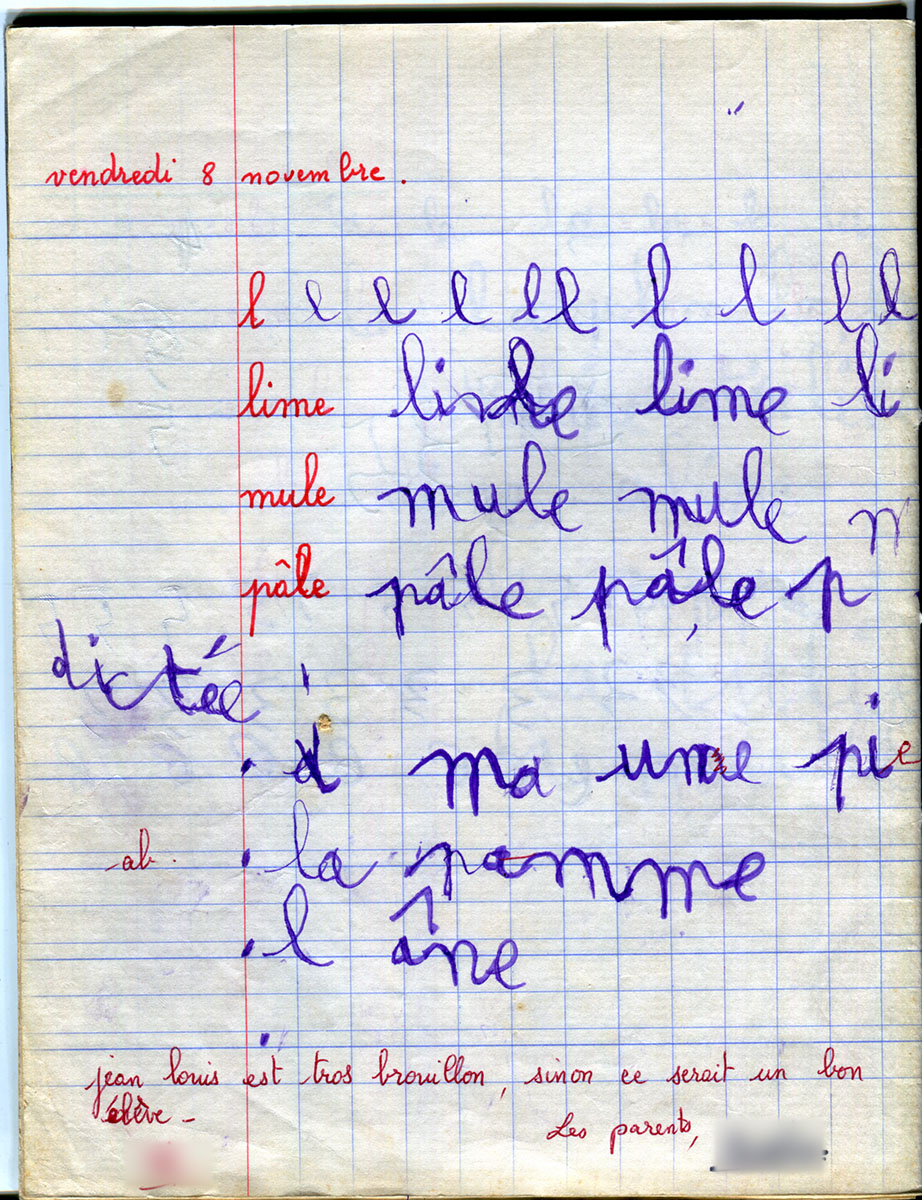 vendredi 8 novembre.
l l l l l l l l l l
lime lime lime li
mule mule mule m
pâle pâle pâle p
dictée
ma une pie
ab. la pomme
l âne
jean louis est tros brouillon, sinon ce serait un bon
élève -
Les parents,